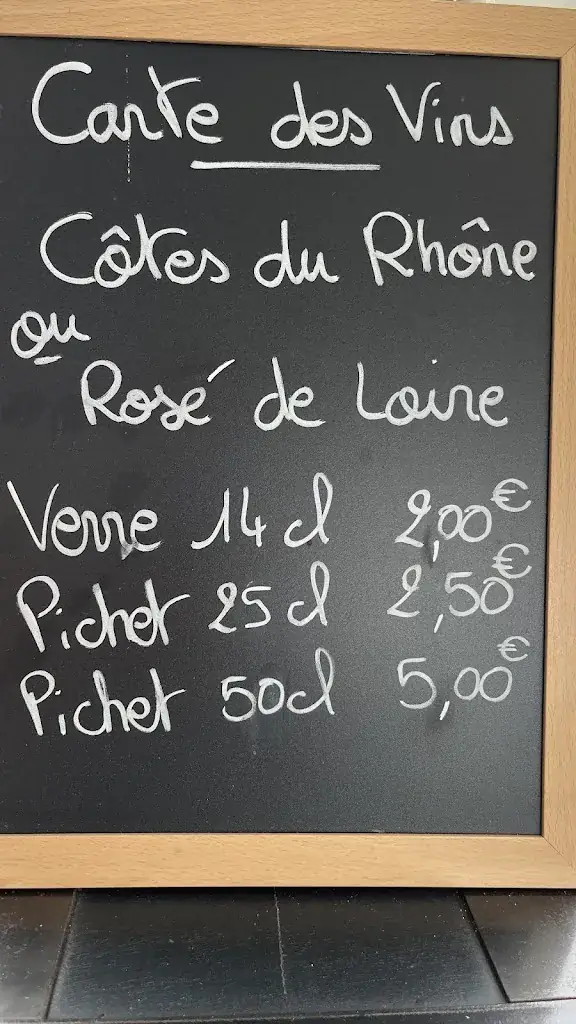 Carte des Vins
Côtes du Rhône
ou
Rosé de Loire
Verre 14 cl 2,00€
Pichet 25 cl 2,50€
Pichet 50cl 5,00€